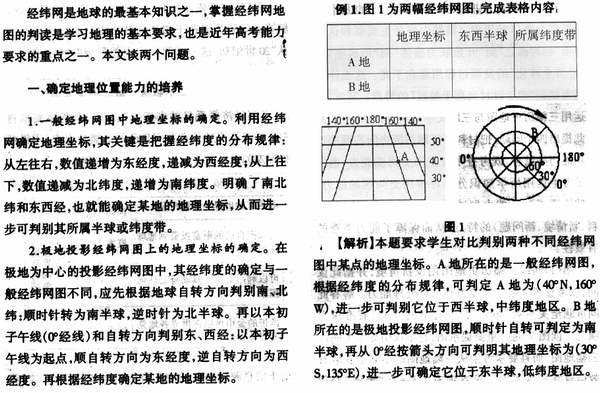 经纬网是地球的最基本知识之一,掌握经纬网地
图的判读是学习地理的基本要求,也是近年高考能力
要求的重点之一。本文谈两个问题。
一、确定地理位置能力的培养
1.一般经纬网图中地理坐标的确定。利用经纬
网确定地理坐标,其关键是把握经纬度的分布规律:
从左往右,数值递增为东经度,递减为西经度;从上往
下,数值递减为北纬度,递增为南纬度。明确了南北
纬和东西经,也就能确定某地的地理坐标,从而进一
步可判别其所属半球或纬度带。
2.极地投影经纬网图上的地理坐标的确定。在
极地为中心的投影经纬网图中,其经纬度的确定与一
般经纬网图不同,应先根据地球自转方向判别南、北
纬:顺时针转为南半球,逆时针为北半球。再以本初
子午线(0°经线)和自转方向判别东、西经:以本初子
午线为起点,顺自转方向为东经度,逆自转方向为西
经度。再根据经纬度确定某地的地理坐标。
例1.图1为两幅经纬网图,完成表格内容:
地理坐标 东西半球 所属纬度带
A地
B地
140°160°180°160°140°
50°
A 40°
30°
B
0° 180°
60°
30°
0°
图1
【解析】本题要求学生对比判别两种不同经纬网
图中某点的地理坐标。A地所在的是一般经纬网图,
根据经纬度的分布规律,可判定A地为(40°N,160°
W),进一步可判别它位于西半球,中纬度地区。B地
所在的是极地投影经纬网图,顺时针自转可判定为南
半球,再从0°经按箭头方向可判明其地理坐标为(30°
S,135°E),进一步可确定它位于东半球,低纬度地区。